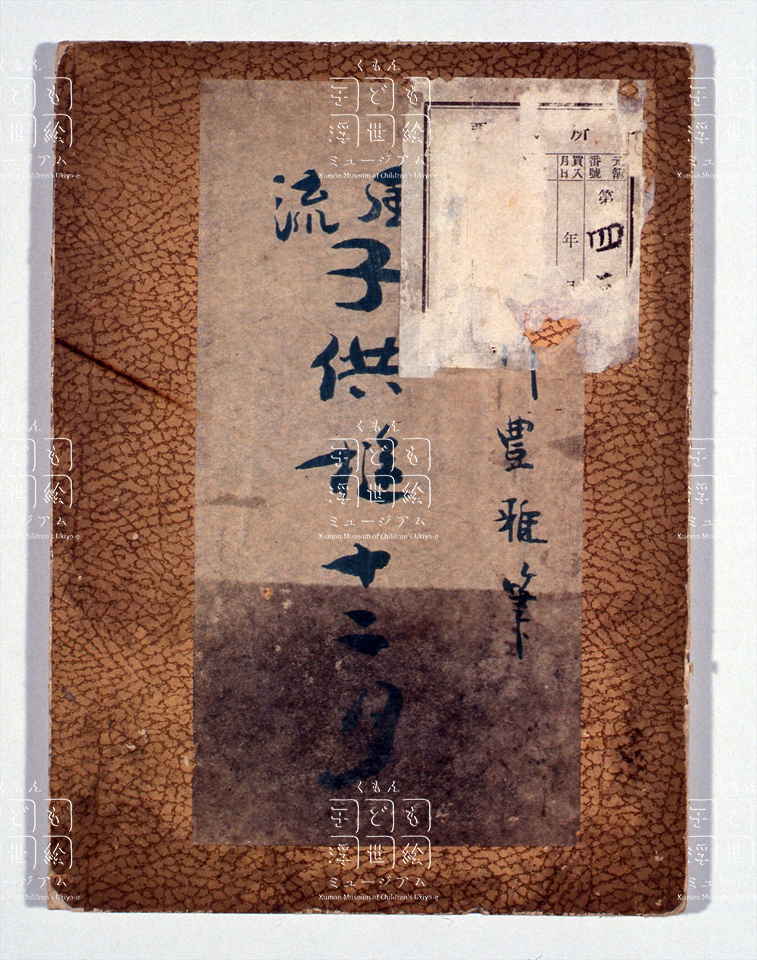 流
子供遊十二月
豊雅筆
所
元簿番號
買入月日
第四
年
くもん
子ども
浮世絵
ミュージアム
Kumon Museum of Children's Ukiyo-e